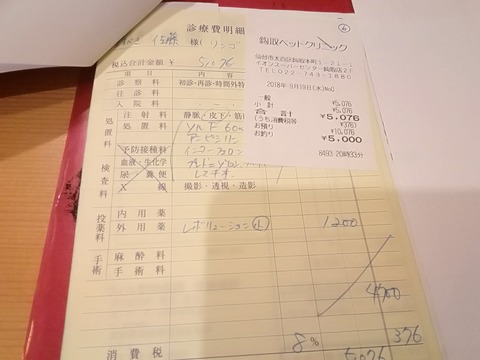 診療費明細
佐藤 様(リンゴ)
税込合計金額 ¥ 5,076
診察料 初診・再診・時間外特
往診料
入院料
注射料 静脈・皮下・筋
処置料 処置料
予防接種料 インターフェロン
検査料 血液・生化学
尿 糞便
X線 撮影・透視・造影
投薬料 内用薬
外用薬 レボリューション 1200
手術料 麻酔料
手術料
4700
376
消費税 8% 5,076
⑥
鈎取ペットクリニック
仙台市太白区鈎取本町1-21-1
イオンスーパーセンター鈎取店2F
TEL022-743-1880
2018年 9月19日(水)No0
一般 ¥5,076
小計 ¥5,076
合計 ¥5,076
(うち消費税等 ¥376)
お預り ¥10,076
お釣り ¥5,000
8493 20時33分